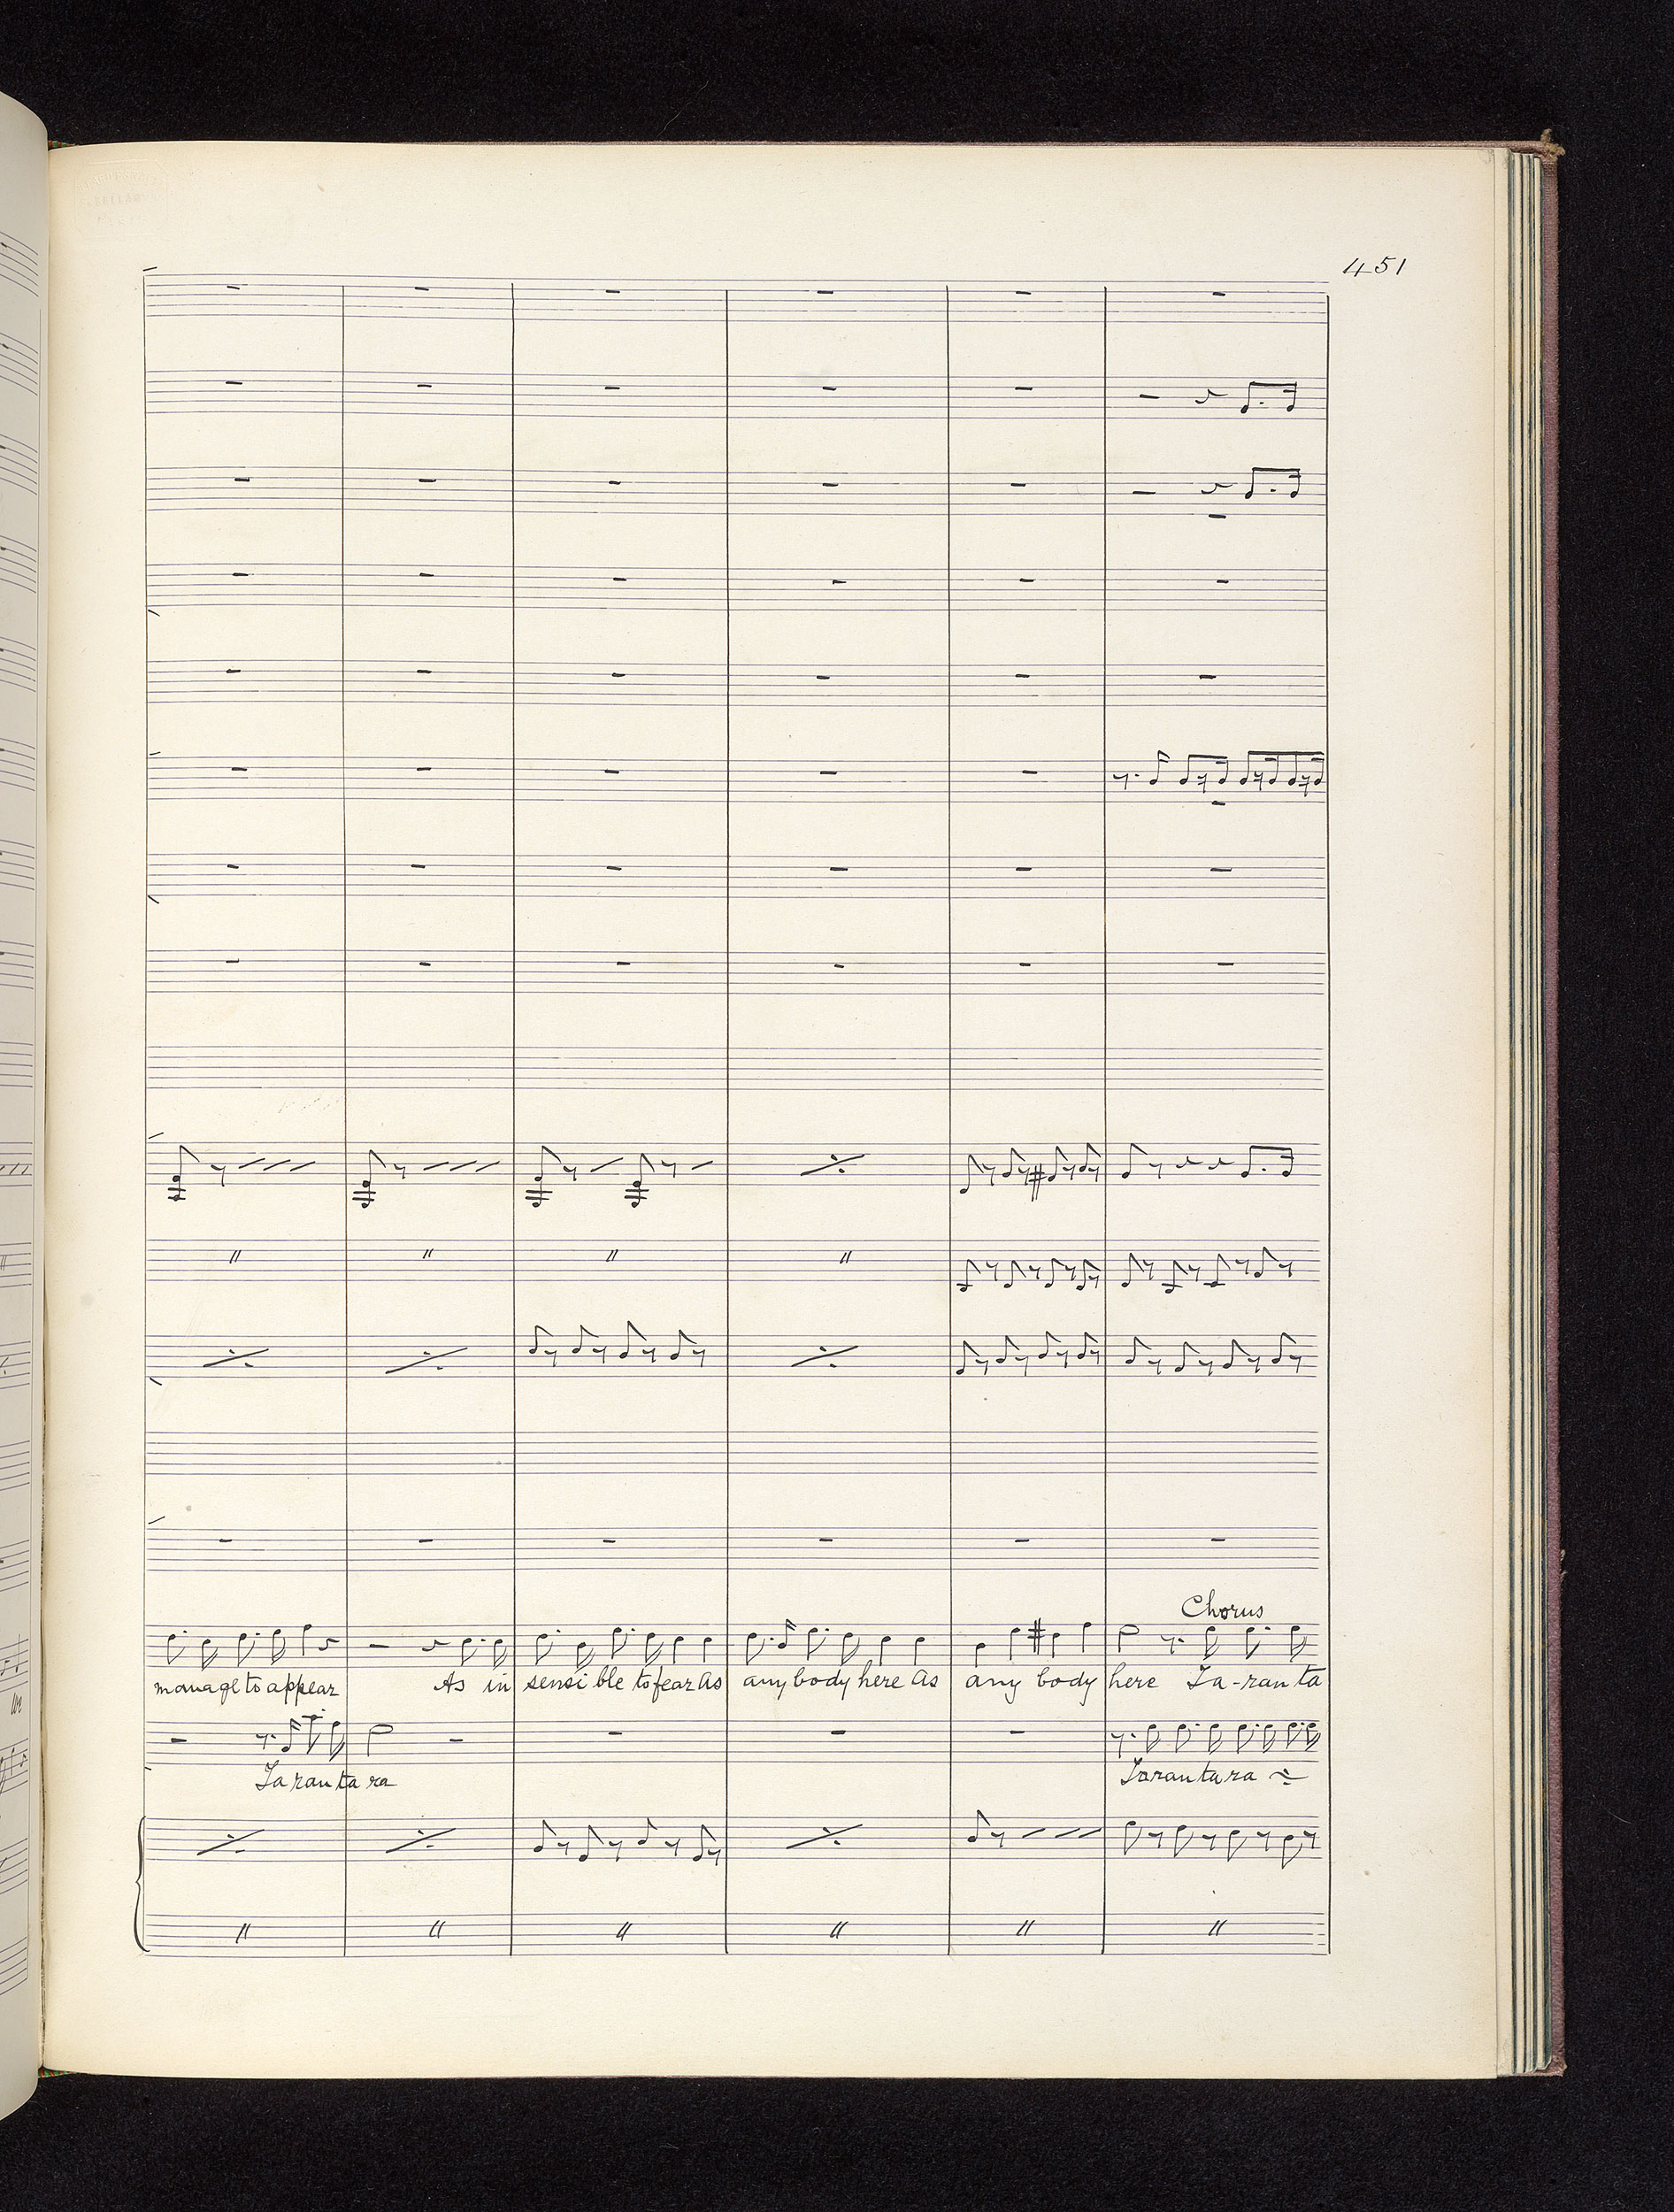 451
Chorus
manage to appear As in sensi ble to fear As any body here As any body here Ta-ran ta
Ta ran ta ra Tarantara